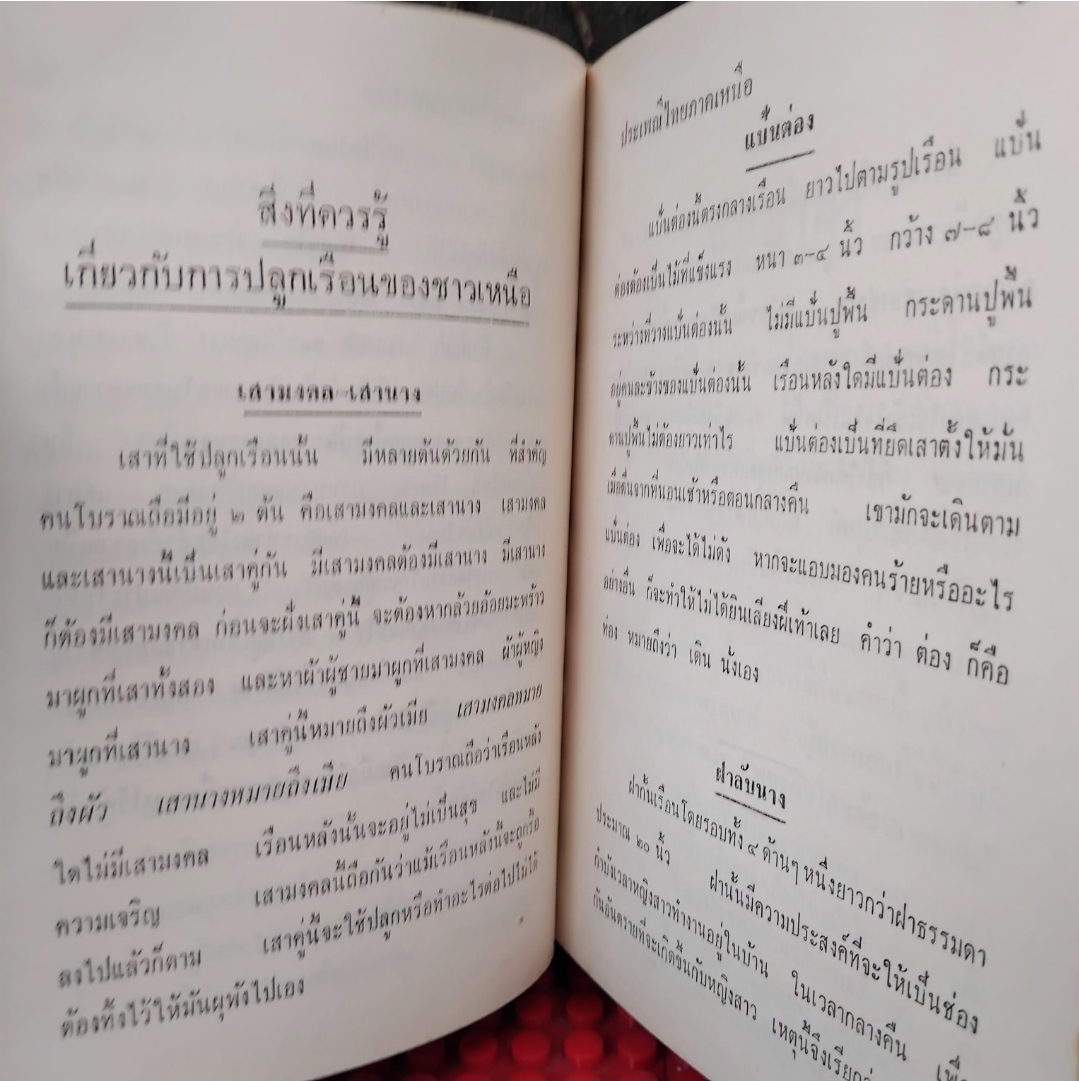 สิ่งที่ควรรู้
เกี่ยวกับการปลูกเรือนของชาวเหนือ
เสามงคล-เสานาง
เสาที่ใช้ปลูกเรือนนั้น มีหลายต้นด้วยกัน ที่สำคัญ
คนโบราณถือมีอยู่ ๒ ต้น คือเสามงคลและเสานาง เสามงคล
และเสานางนี้เป็นเสาคู่กัน มีเสามงคลต้องมีเสานาง มีเสานาง
ก็ต้องมีเสามงคล ก่อนจะฝังเสาคู่นี้ จะต้องหากล้วยอ้อยมะพร้าว
มาผูกที่เสาทั้งสอง และหาผ้าผู้ชายมาผูกที่เสามงคล ผ้าผู้หญิง
มาผูกที่เสานาง เสาคู่นี้หมายถึงผัวเมีย เสามงคลหมาย
ถึงผัว เสานางหมายถึงเมีย คนโบราณถือว่าเรือนหลัง
ใดไม่มีเสามงคล เรือนหลังนั้นจะอยู่ไม่เป็นสุข และไม่มี
ความเจริญ เสามงคลนี้ถือกันว่าแม้เรือนหลังนี้จะถูกรื้อ
ลงไปแล้วก็ตาม เสาคู่นี้จะใช้ปลูกหรือทำอะไรต่อไปไม่ได้
ต้องทิ้งไว้ให้มันผุพังไปเอง
ประเพณีไทยภาคเหนือ
แป้นต่อง
แป้นต่องนี้ตรงกลางเรือน ยาวไปตามรูปเรือน แป้น
ต่องต้องเป็นไม้ที่แข็งแรง หนา ๓-๔ นิ้ว กว้าง ๗-๘ นิ้ว
ระหว่างที่วางแป้นต่องนั้น ไม่มีแป้นปูพื้น กระดานปูพื้น
อยู่คนละข้างของแป้นต่องนั้น เรือนหลังใดมีแป้นต่อง กระ
ดานปูพื้นไม่ต้องยาวเท่าไร แป้นต่องเป็นที่ยึดเสาตั้งให้มั่น
เมื่อตื่นจากที่นอนเช้าหรือตอนกลางคืน เขามักจะเดินตาม
แป้นต่อง เพื่อจะได้ไม่ดัง หากจะแอบมองคนร้ายหรืออะไร
อย่างอื่น ก็จะทำให้ไม่ได้ยินเสียงฝีเท้าเลย คำว่า ต่อง ก็คือ
ท่อง หมายถึงว่า เดิน นั่งเอง
ฝาลับนาง
ฝากั้นเรือนโดยรอบทั้ง ๔ ด้านๆ หนึ่งยาวกว่าฝาธรรมดา
ประมาณ ๒๐ นิ้ว ฝานั้นมีความประสงค์ที่จะให้เป็นช่อง
กำบังเวลาหญิงสาวทำงานอยู่ในบ้าน ในเวลากลางคืน
กันอันตรายที่จะเกิดขึ้นกับหญิงสาว เหตุนี้จึงเรียก